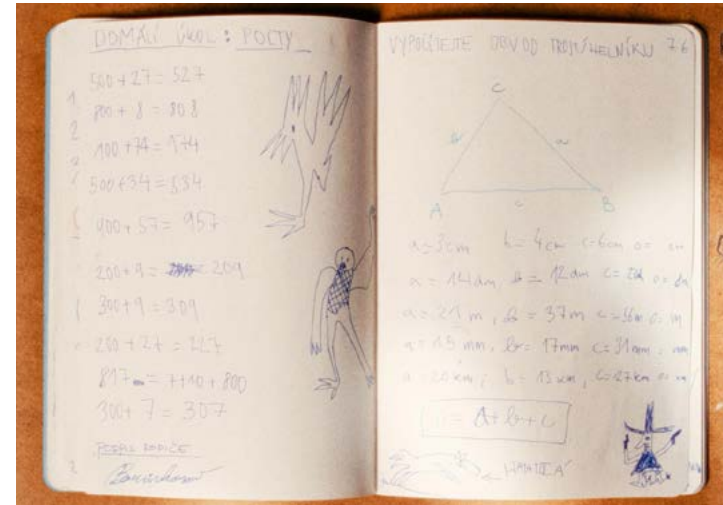 DOMÁCÍ ÚKOL: POČTY
500+27=527
800+8=808
500+34=534
900+57=957
200+9= 209
300+9=309
200+27=227
817 = 7+10+800
300+7=307
PODPIS RODIČE
VYPOČÍTEJTE OBVOD TROJÚHELNÍKU 76
C
b a
A c B
a=3cm b=4cm c=6cm o= cm
a=14dm, b=12dm c=
a=21m, b=37m c=56m o= m
a=15mm, b=17mm c=31mm mm
a=20km, b=13km, c=27km
= A+b+c